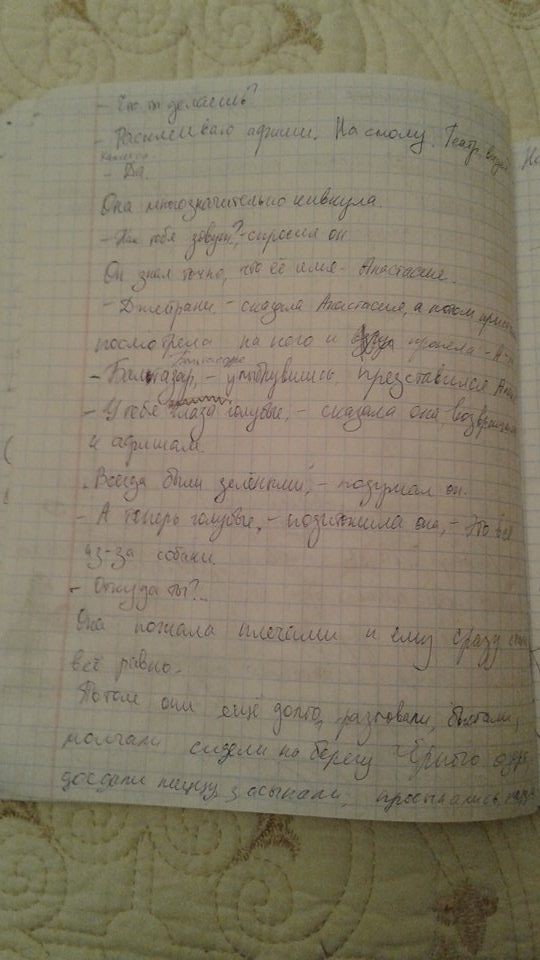 - Что ты делаешь?
- Расклеиваю афиши. На смолу. Театр
- Да.
Она многозначительно кивнула.
- Как тебя зовут?, - спросил он
Он знал точно, что её имя - Анастасия.
- Джебрани, - сказала Анастасия, а потом
посмотрела на него и пропела - А
- Бальтазар, - улыбнувшись, представился
- У тебя глаза голубые, - сказала она,
к афишам.
"Всегда были зелёными", - подумал он.
- А теперь голубые, - она, - Это всё
из-за собаки.
- Откуда ты?..
Она пожала плечами и ему сразу
всё равно.
Потом они ещё долго
молчали сидели на берегу Чёрного
доедали пиццу, засыпали, просыпались,